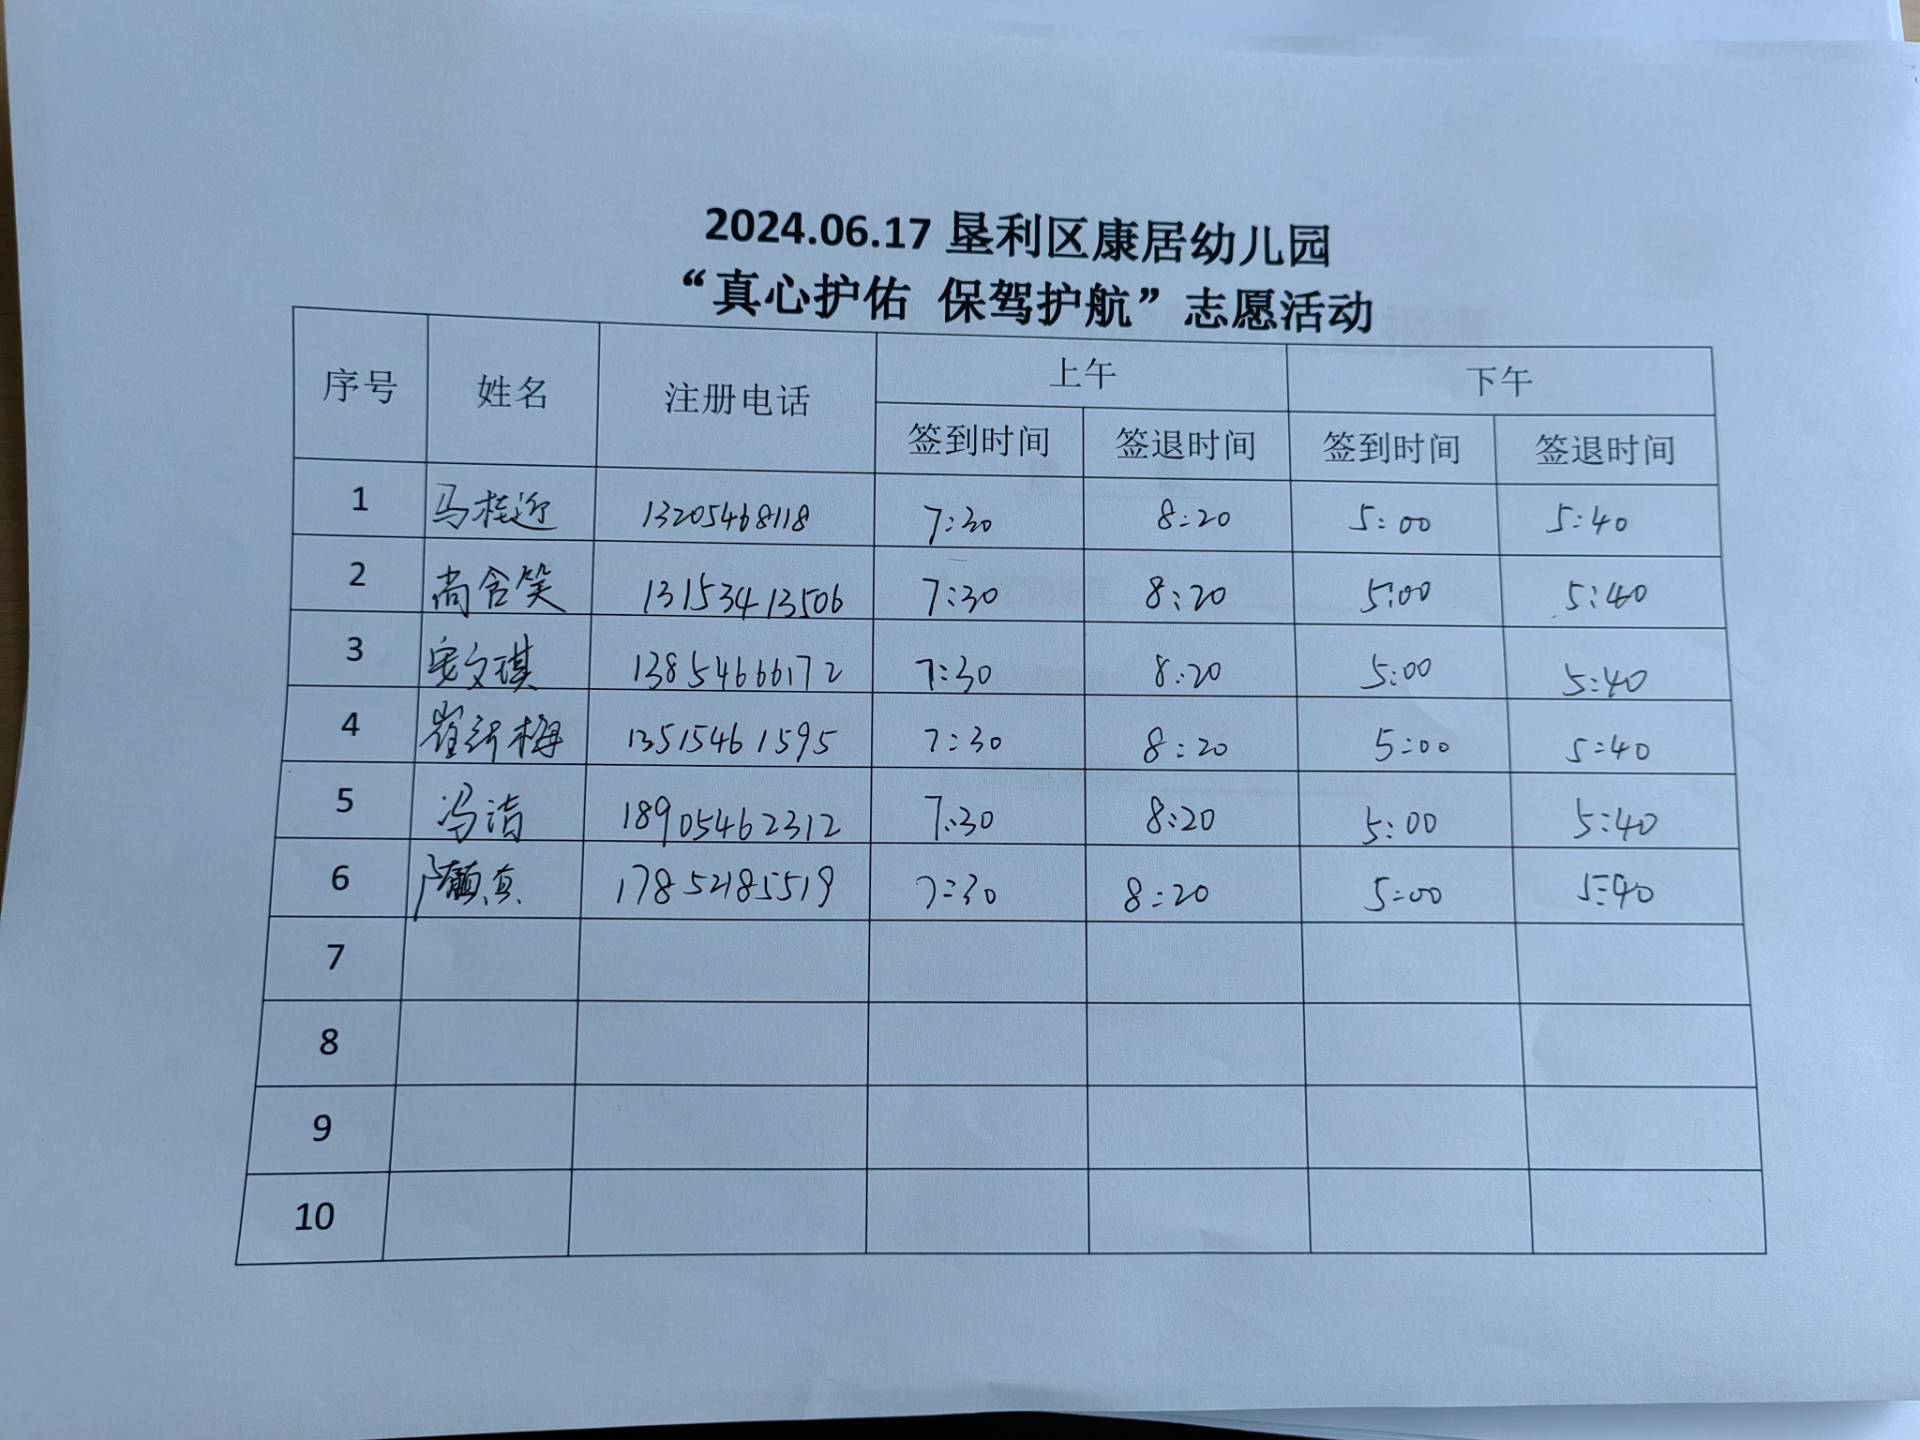 2024.06.17 垦利区康居幼儿园
“真心护佑 保驾护航”志愿活动
序号 姓名 注册电话 上午 下午
签到时间 签退时间 签到时间 签退时间
1 马桂迎 13205468118 7:30 8:20 5:00 5:40
2 尚含笑 13153413506 7:30 8:20 5:00 5:40
3 安文琪 13854666172 7:30 8:20 5:00 5:40
4 13515461595 7:30 8:20 5:00 5:40
5 冯洁 18905462312 7:30 8:20 5:00 5:40
6 17852185519 7:30 8:20 5:00 5:40
7
8
9
10